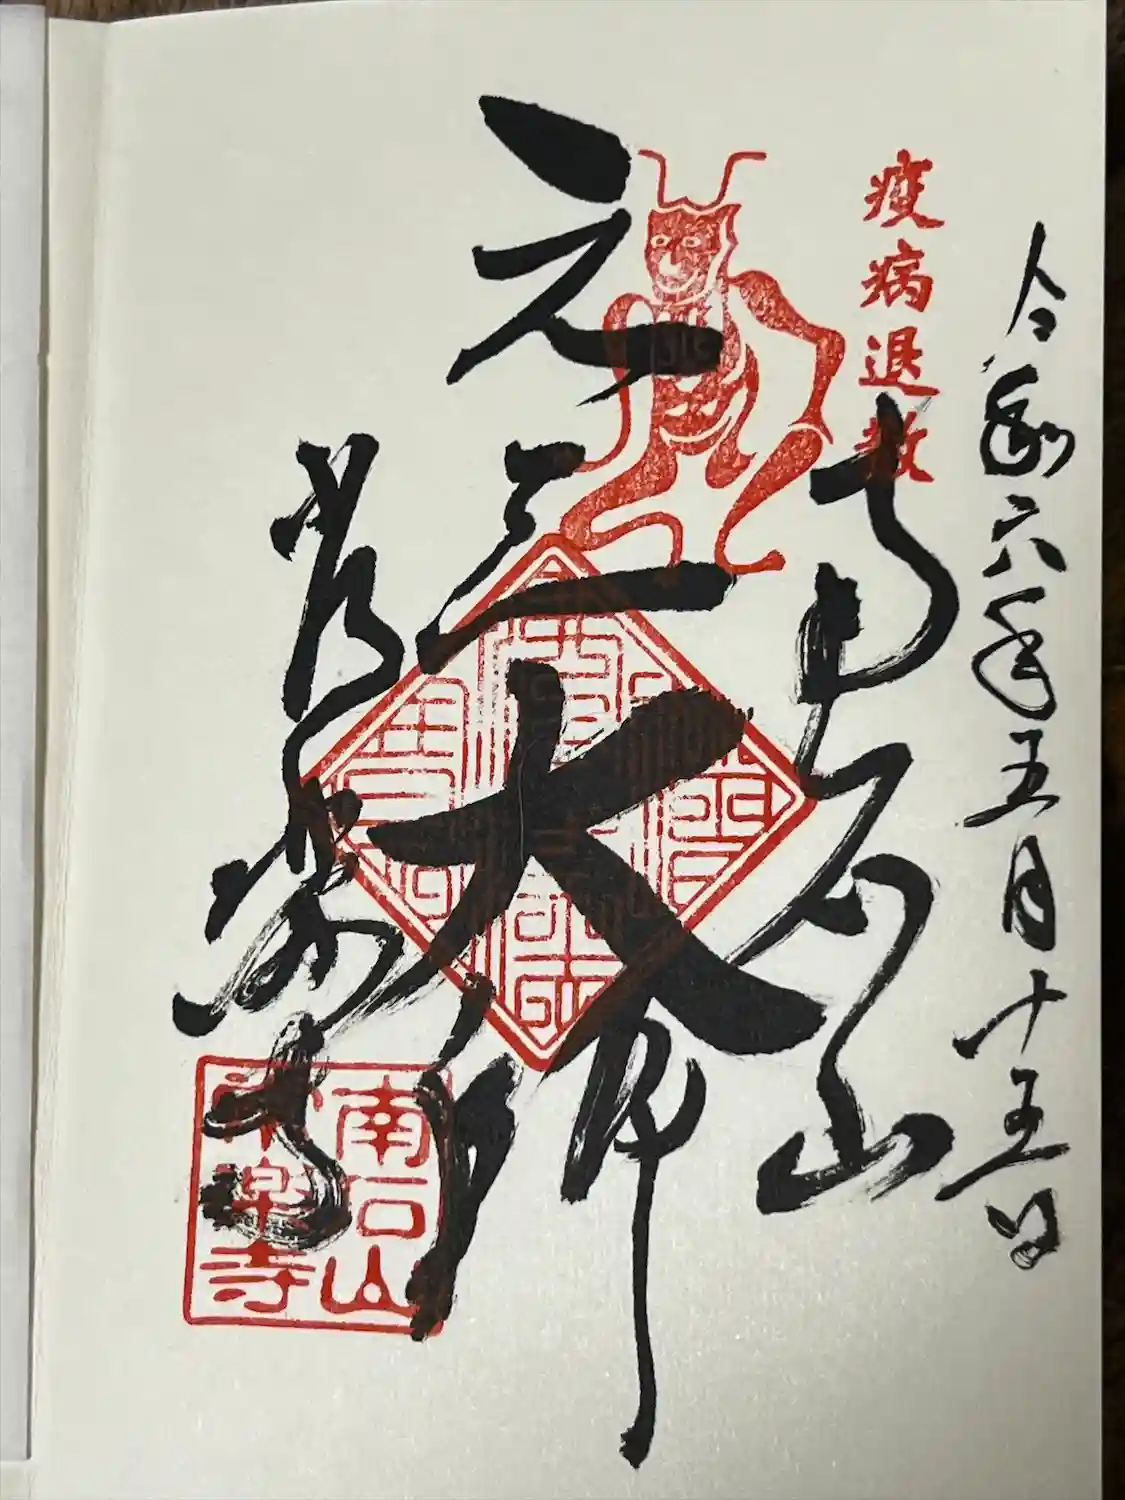 令和六年五月十五日
疫病退散
南石山
元三大師
楽寺
南石山
楽寺